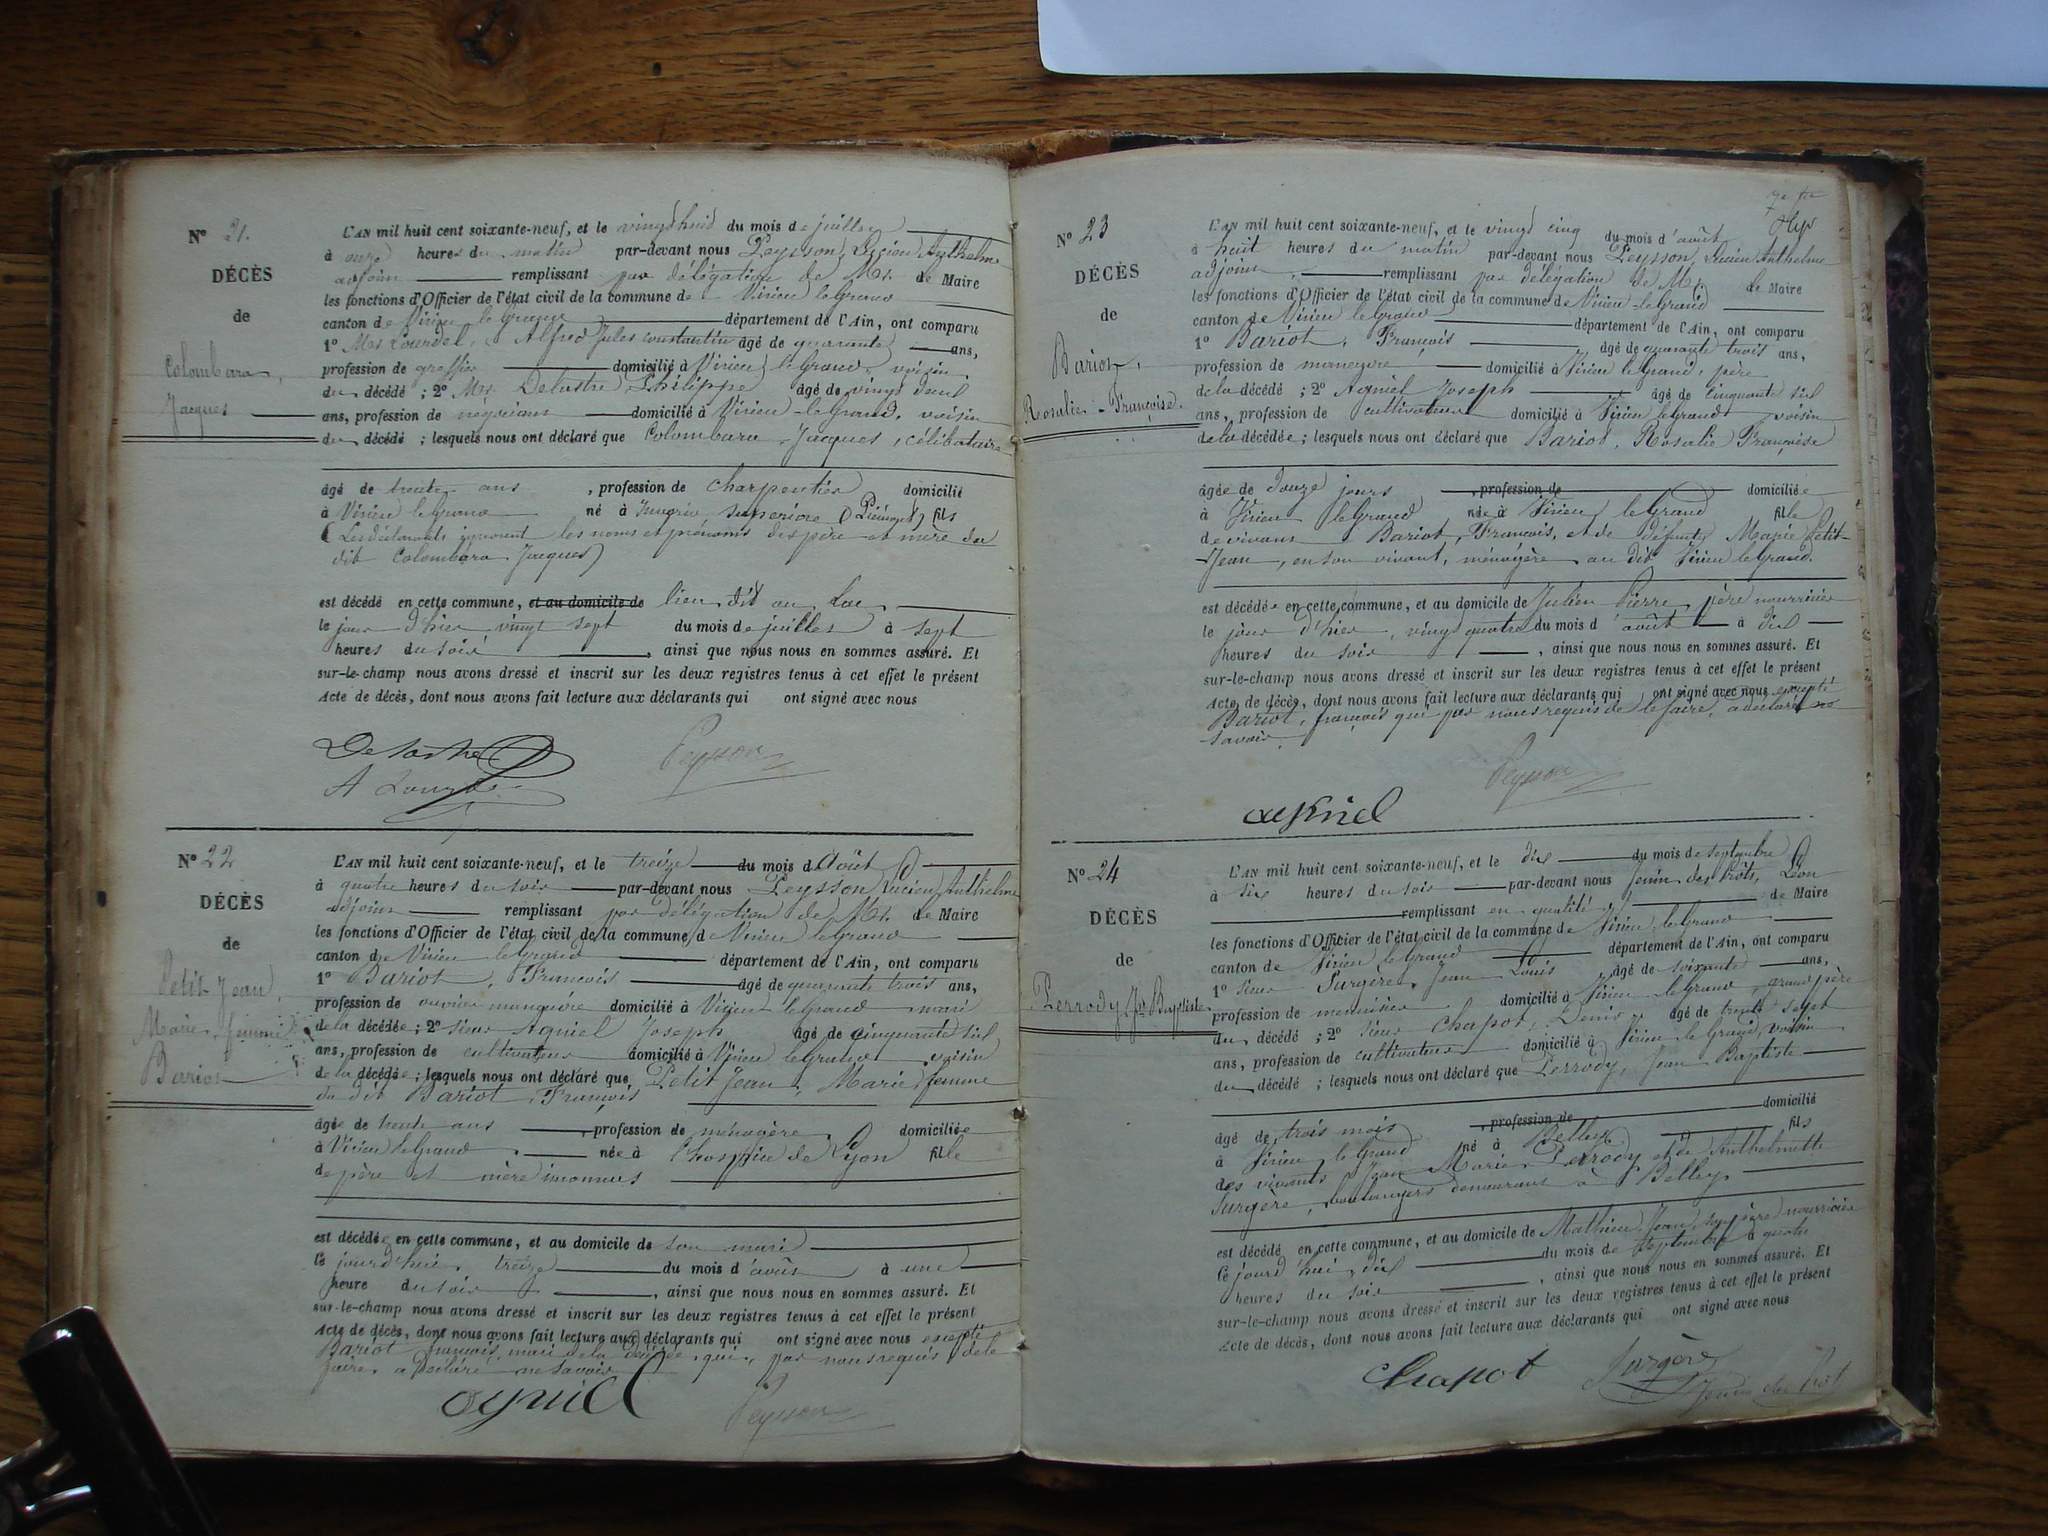 N° 21.
DÉCÈS
de
Colombara,
Jacques
L'AN mil huit cent soixante-neuf, et le vingt huit du mois de juillet
à onze heures du matin par-devant nous Peysson, Lucien Anthelme
adjoint remplissant par délégation de Mr. le Maire
les fonctions d'Officier de l'état civil de la commune de Virieu le Grand
canton de Virieu le Grand département de l'Ain, ont comparu
1° Mr Lourdel, Alfred Jules Constantin âgé de quarante ans,
profession de greffier domicilié à Virieu le Grand, voisin
du décédé ; 2° Mr. Delastre Philippe âgé de vingt neuf
ans, profession de négociant domicilié à Virieu-le-Grand, voisin
du décédé ; lesquels nous ont déclaré que Colombara Jacques, célibataire
âgé de trente ans , profession de charpentier domicilié
à Virieu le Grand né à superiore (Piémont) fils
(Les déclarants ignorent les noms et prénoms des père et mère du
dit Colombara Jacques)
est décédé en cette commune, et au domicile de lieu dit au Lac
le jour d'hier vingt sept du mois de juillet à sept
heures du soir , ainsi que nous nous en sommes assuré. Et
sur-le-champ nous avons dressé et inscrit sur les deux registres tenus à cet effet le présent
Acte de décès, dont nous avons fait lecture aux déclarants qui ont signé avec nous
Delastre Peysson
A Lourdel
N° 22
DÉCÈS
de
Petit Jean,
Marie, femme
Bariot
L'AN mil huit cent soixante-neuf, et le treize du mois d'Août
à quatre heures du soir par-devant nous Peysson, Lucien Anthelme
adjoint remplissant par délégation de Mr. le Maire
les fonctions d'Officier de l'état civil de la commune de Virieu le Grand
canton de Virieu le Grand département de l'Ain, ont comparu
1° Bariot, François âgé de quarante trois ans,
profession de ouvrier domicilié à Virieu le Grand mari
de la décédée ; 2° sieur Agniel Joseph âgé de cinquante six
ans, profession de cultivateur domicilié à Virieu le Grand voisin
de la décédée ; lesquels nous ont déclaré que Petit Jean, Marie, femme
du dit Bariot, François
âgée de trente ans , profession de ménagère domiciliée
à Virieu le Grand née à l'hospice de Lyon fille
de père et mère inconnus
est décédée en cette commune, et au domicile de son mari
le jourd'hui, treize du mois d'août à une
heure du soir , ainsi que nous nous en sommes assuré. Et
sur-le-champ nous avons dressé et inscrit sur les deux registres tenus à cet effet le présent
Acte de décès, dont nous avons fait lecture aux déclarants qui ont signé avec nous excepté
Bariot françois, mari de la décédée, qui, par nous requis de le
faire, a déclaré ne savoir
agniel Peysson
N° 23
DÉCÈS
de
Bariot,
Rosalie-Françoise.
L'AN mil huit cent soixante-neuf, et le vingt cinq du mois d'août
à huit heures du matin par-devant nous Peysson, Lucien Anthelme
adjoint, remplissant par délégation de Mr. le Maire
les fonctions d'Officier de l'état civil de la commune de Virieu-le-Grand
canton de Virieu le Grand département de l'Ain, ont comparu
1° Bariot, François âgé de quarante trois ans,
profession de domicilié à Virieu le Grand, père
de la décédé ; 2° Agniel Joseph âgé de cinquante six
ans, profession de cultivateur domicilié à Virieu le Grand voisin
de la décédée ; lesquels nous ont déclaré que Bariot, Rosalie Françoise
âgée de douze jours , profession de domiciliée
à Virieu le Grand née à Virieu le Grand fille
de vivant Bariot, François, et de défunte Marie Petit-
Jean, en son vivant, ménagère au dit Virieu le Grand.
est décédée en cette commune, et au domicile de Julien Pierre, père nourricier
le jour d'hier, vingt quatre du mois d'août à dix
heures du soir , ainsi que nous nous en sommes assuré. Et
sur-le-champ nous avons dressé et inscrit sur les deux registres tenus à cet effet le présent
Acte de décès, dont nous avons fait lecture aux déclarants qui ont signé avec nous excepté
Bariot, françois qui par nous requis de le faire, a déclaré ne
savoir.
Peysson
agniel
N° 24
DÉCÈS
de
Perrody Jn Baptiste
L'AN mil huit cent soixante-neuf, et le dix du mois de septembre
à six heures du soir par-devant nous Jenin des Prôts, Léon
remplissant en qualité de Maire
les fonctions d'Officier de l'état civil de la commune de Virieu le Grand
canton de Virieu le Grand département de l'Ain, ont comparu
1° sieur Surgère, Jean Louis âgé de soixante ans,
profession de menuisier domicilié à Virieu le Grand, grand père
du décédé ; 2° sieur Chapot, Denis, âgé de trente sept
ans, profession de cultivateur domicilié à Virieu le Grand, voisin
du décédé ; lesquels nous ont déclaré que Perrody, Jean Baptiste
âgé de trois mois , profession de domicilié
à Virieu le Grand né à Belley fils
des vivants Jean Marie Perrody et de Anthelmette
Surgère, boulangers demeurant à Belley.
est décédé en cette commune, et au domicile de Mathieu, Jean, son père nourricier
le jourd'hui, dix du mois de septembre à quatre
heures du soir , ainsi que nous nous en sommes assuré. Et
sur-le-champ nous avons dressé et inscrit sur les deux registres tenus à cet effet le présent
Acte de décès, dont nous avons fait lecture aux déclarants qui ont signé avec nous
Chapot Surgère
Jenin des Prôts